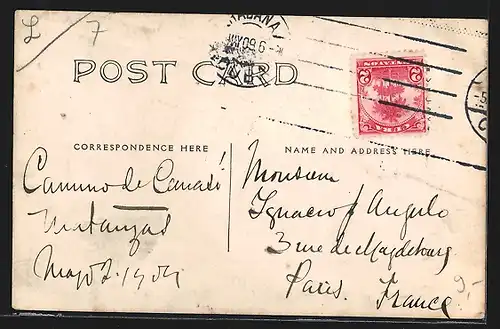 L 7
HABANA
POST CARD
CORRESPONDENCE HERE
NAME AND ADDRESS HERE
Camino de Canasí
Matanzas
Mayo 2. 1909
Monsieur
Ignacio Angulo
3 rue de Magdebourg
Paris.
France